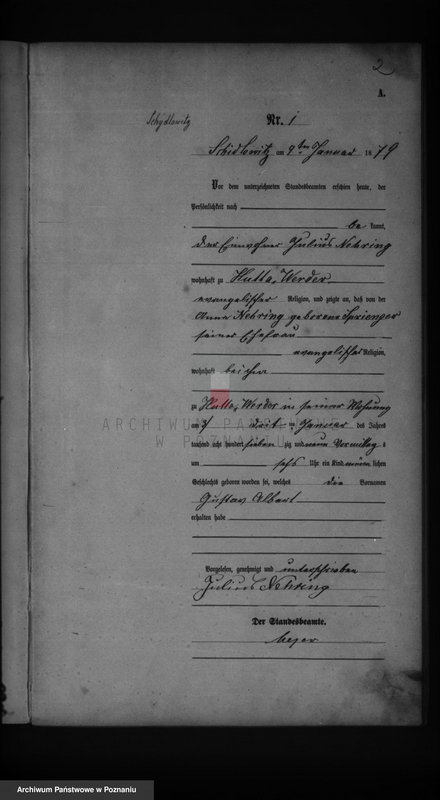 2
A.
Schydlowitz
Nr. 1
Schidlowitz am 4ten Januar 1879
Vor dem unterzeichneten Standesbeamten erschien heute, der
Persönlichkeit nach
be kannt,
der Einwohner Julius Nehring
wohnhaft zu Hutta, Werder
evangelischer Religion, und zeigte an, daß von der
Anna Nehring geborene
seiner Ehefrau
evangelischer Religion,
wohnhaft bei ihm
zu Hutta, Werder in seiner Wohnung
am 3 drit ten Januar des Jahres
tausend acht hundert sieben zig und neun Vormittag s
um sechs Uhr ein Kind männ lichen
Geschlechts geboren worden sei, welches die Vornamen
Gustav Albert
erhalten habe
Vorgelesen, genehmigt und unterschrieben
Julius Nehring
Der Standesbeamte.
ARCHIWUM PAŃSTWOWE
W POZNANIU
Archiwum Państwowe w Poznaniu